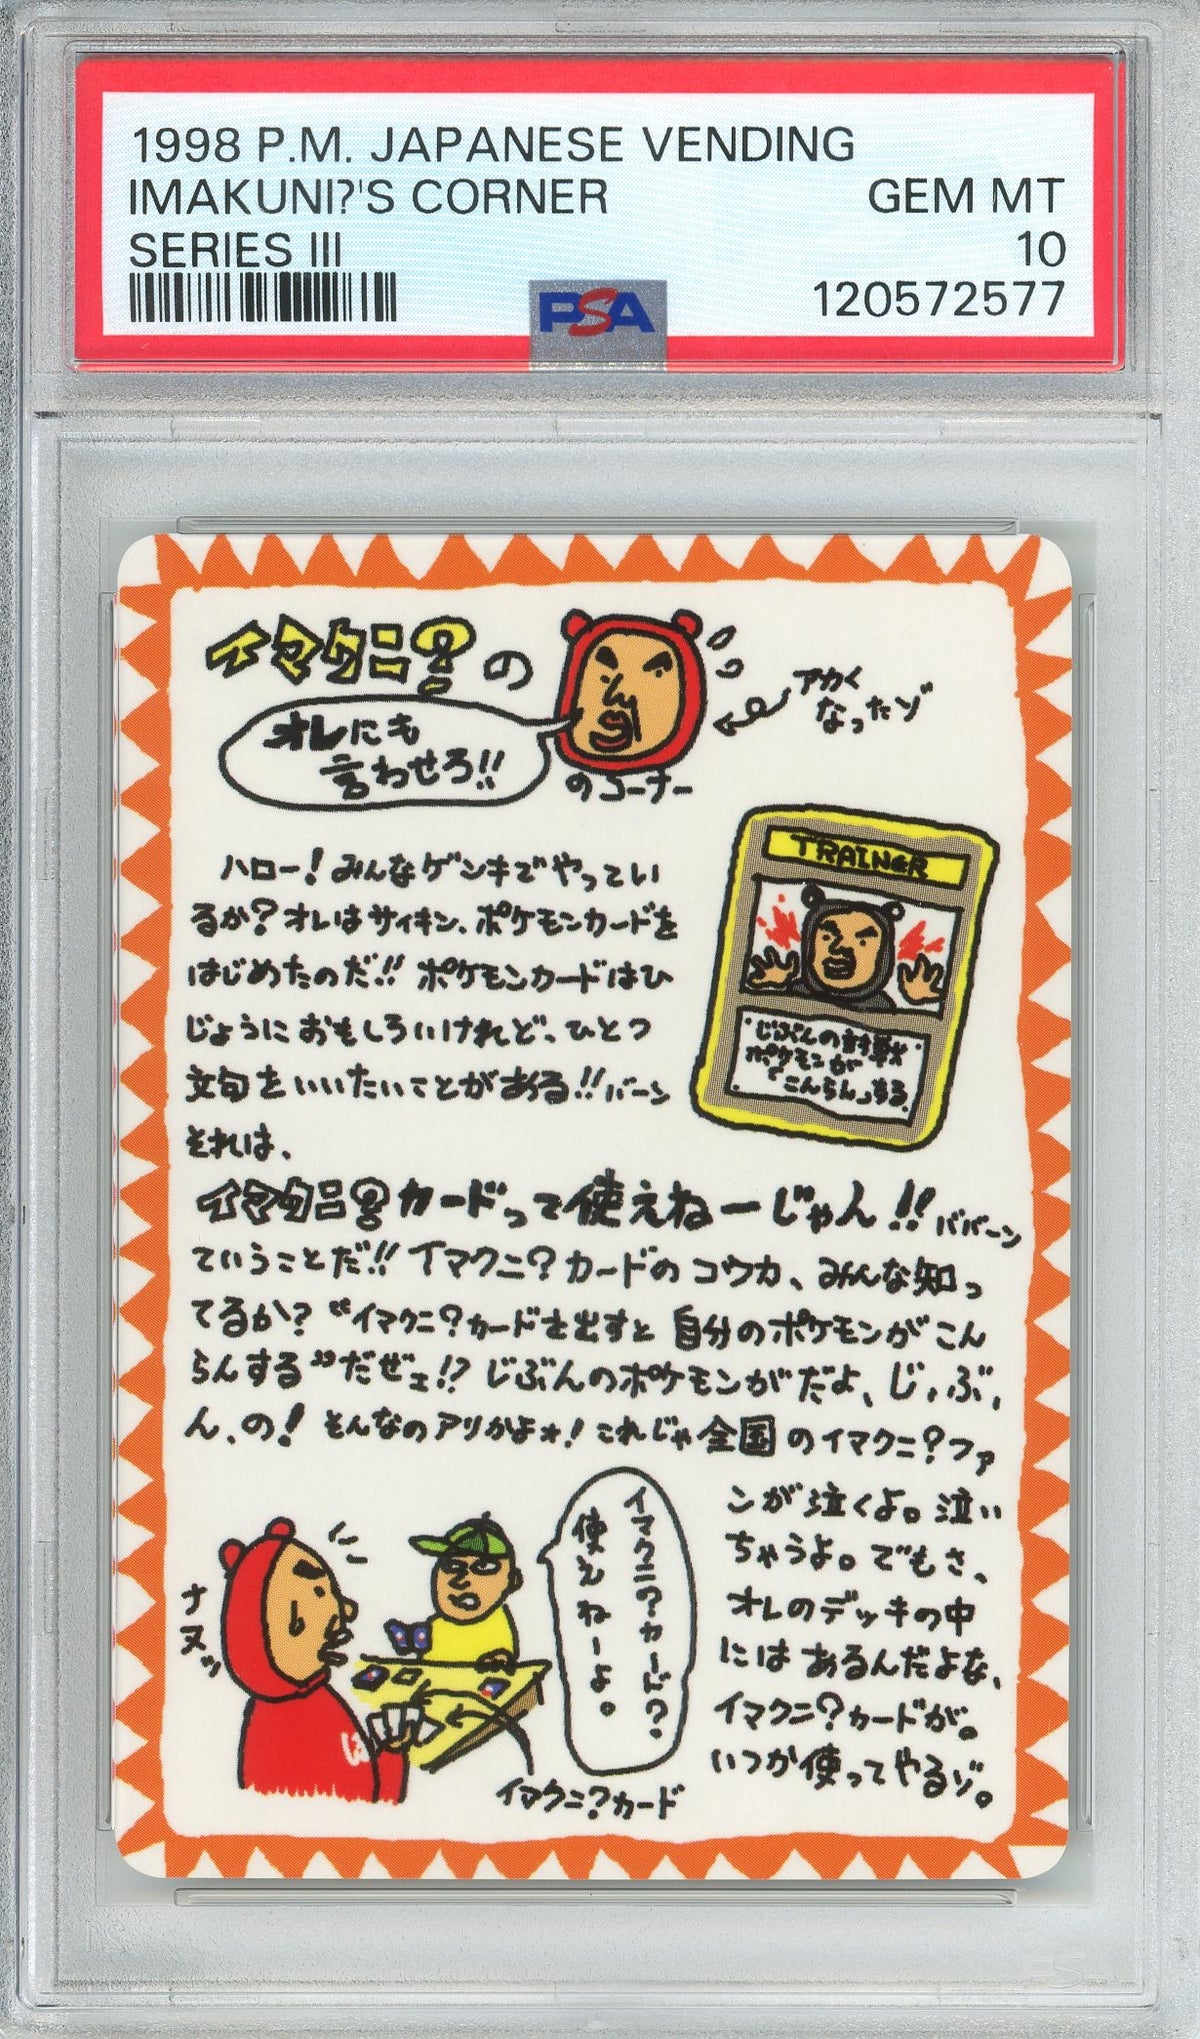 1998 P.M. JAPANESE VENDING
IMAKUNI?'S CORNER
GEM MT
SERIES III
10
PSA
120572577
イマクニ?の
オレにも
言わせろ!!
のコーナー
アカく
なったゾ
ハロー!みんなゲンキでやってい
るか?オレはサイキン、ポケモンカードを
はじめたのだ!!ポケモンカードはひ
じょうにおもしろいけれど、ひとつ
文句をいいたいことがある!!バーン
それは、
TRAINER
じぶんの対戦
ポケモンが
「こんらん」する。
イマクニ?カードって使えねーじゃん!!ババーン
ていうことだ!!イマクニ?カードのコウカ、みんな知っ
てるか?“イマクニ?カードを出すと自分のポケモンがこん
らんする”だぜェ!?じぶんのポケモンがだよ、じ、ぶ、
ん、の!そんなのアリかよォ!これじゃ全国のイマクニ?ファ
ンが泣くよ。泣い
ちゃうよ。でもさ、
オレのデッキの中
にはあるんだよな、
イマクニ?カードが。
いつか使ってやるゾ。
ナヌッ
イマクニ?カード?
使えねーよ。
イマクニ?カード